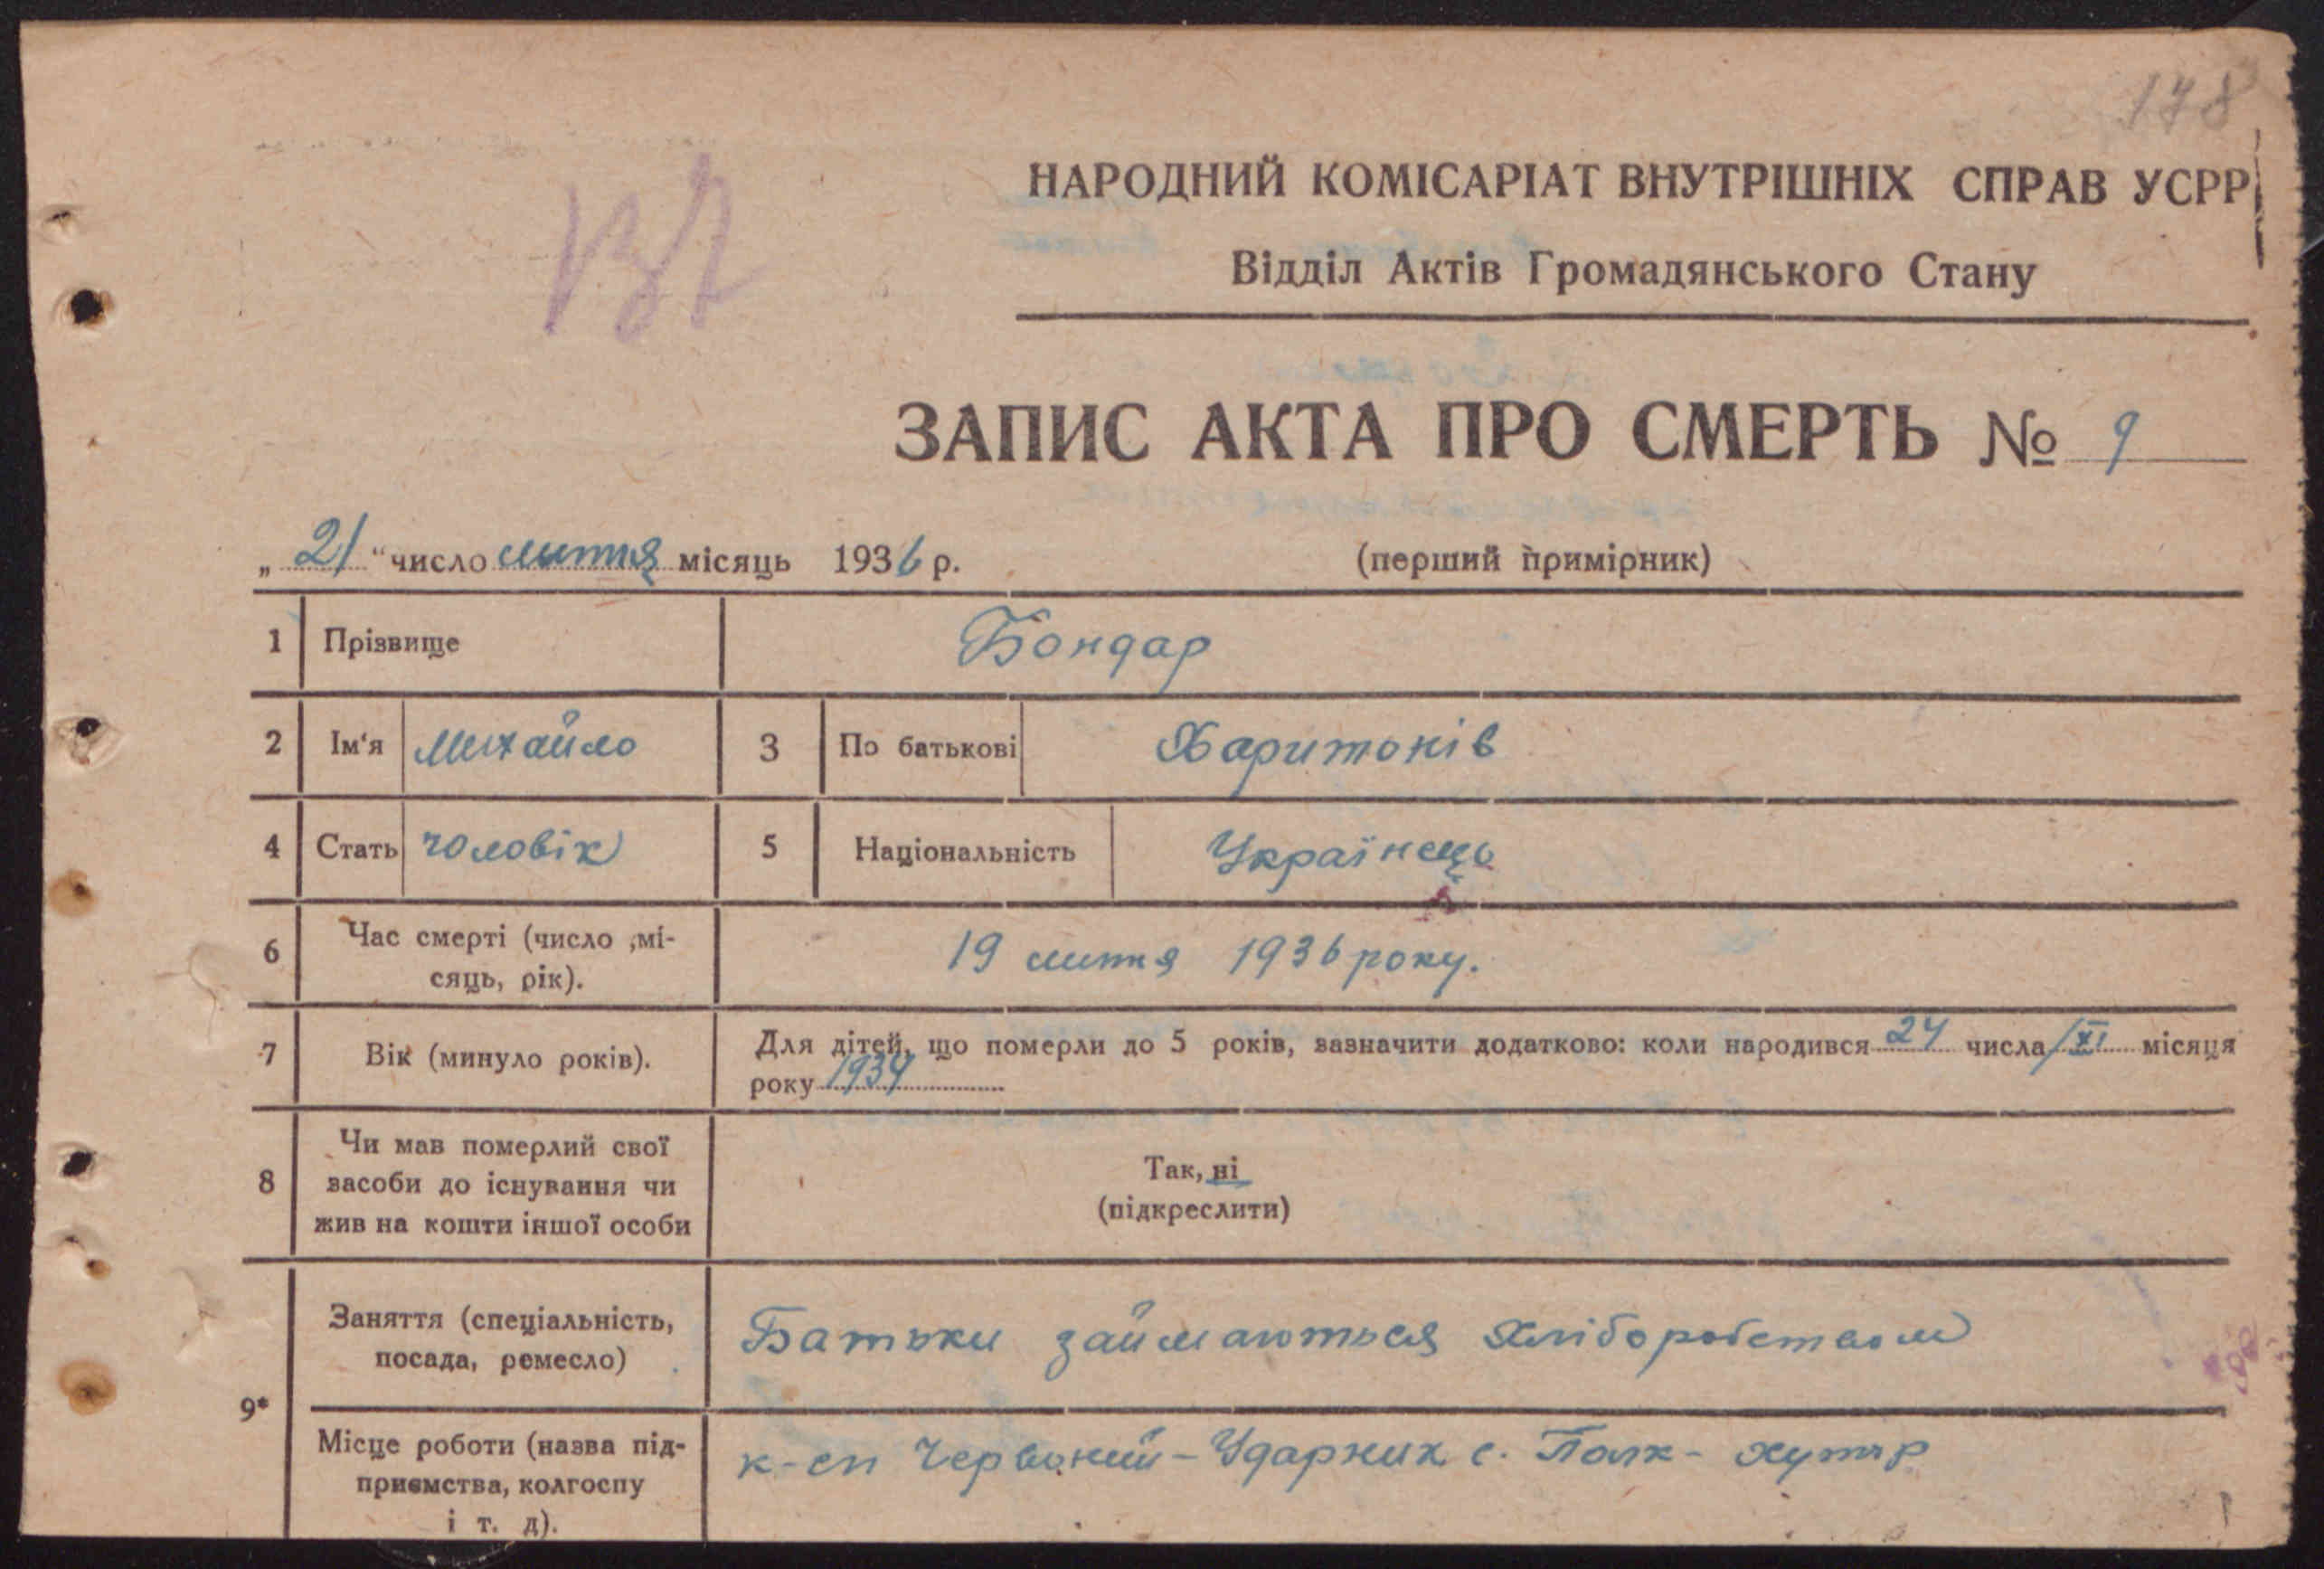 178
137
НАРОДНИЙ КОМІСАРІАТ ВНУТРІШНІХ СПРАВ УСРР
Відділ Актів Громадянського Стану
ЗАПИС АКТА ПРО СМЕРТЬ № 9
„ 21 “ число липня місяць 1936 р. (перший примірник)
1 Прізвище Бондар
2 Ім‘я Михайло 3 По батькові Харитонів
4 Стать чоловік 5 Національність Українець
6 Час смерті (число ,мі-
сяць, рік). 19 липня 1936 року.
7 Вік (минуло років). Для дітей, що померли до 5 років, зазначити додатково: коли народився 24 числа /XI місяця
року 1934
8 Чи мав померлий свої
засоби до існування чи
жив на кошти іншої особи
Так, ні
(підкреслити)
9* Заняття (спеціальність,
посада, ремесло) Батьки займаються хліборобством
Місце роботи (назва під-
приємства, колгоспу
і т. д). к-сп Червоний-Ударник с. Полк- хутір